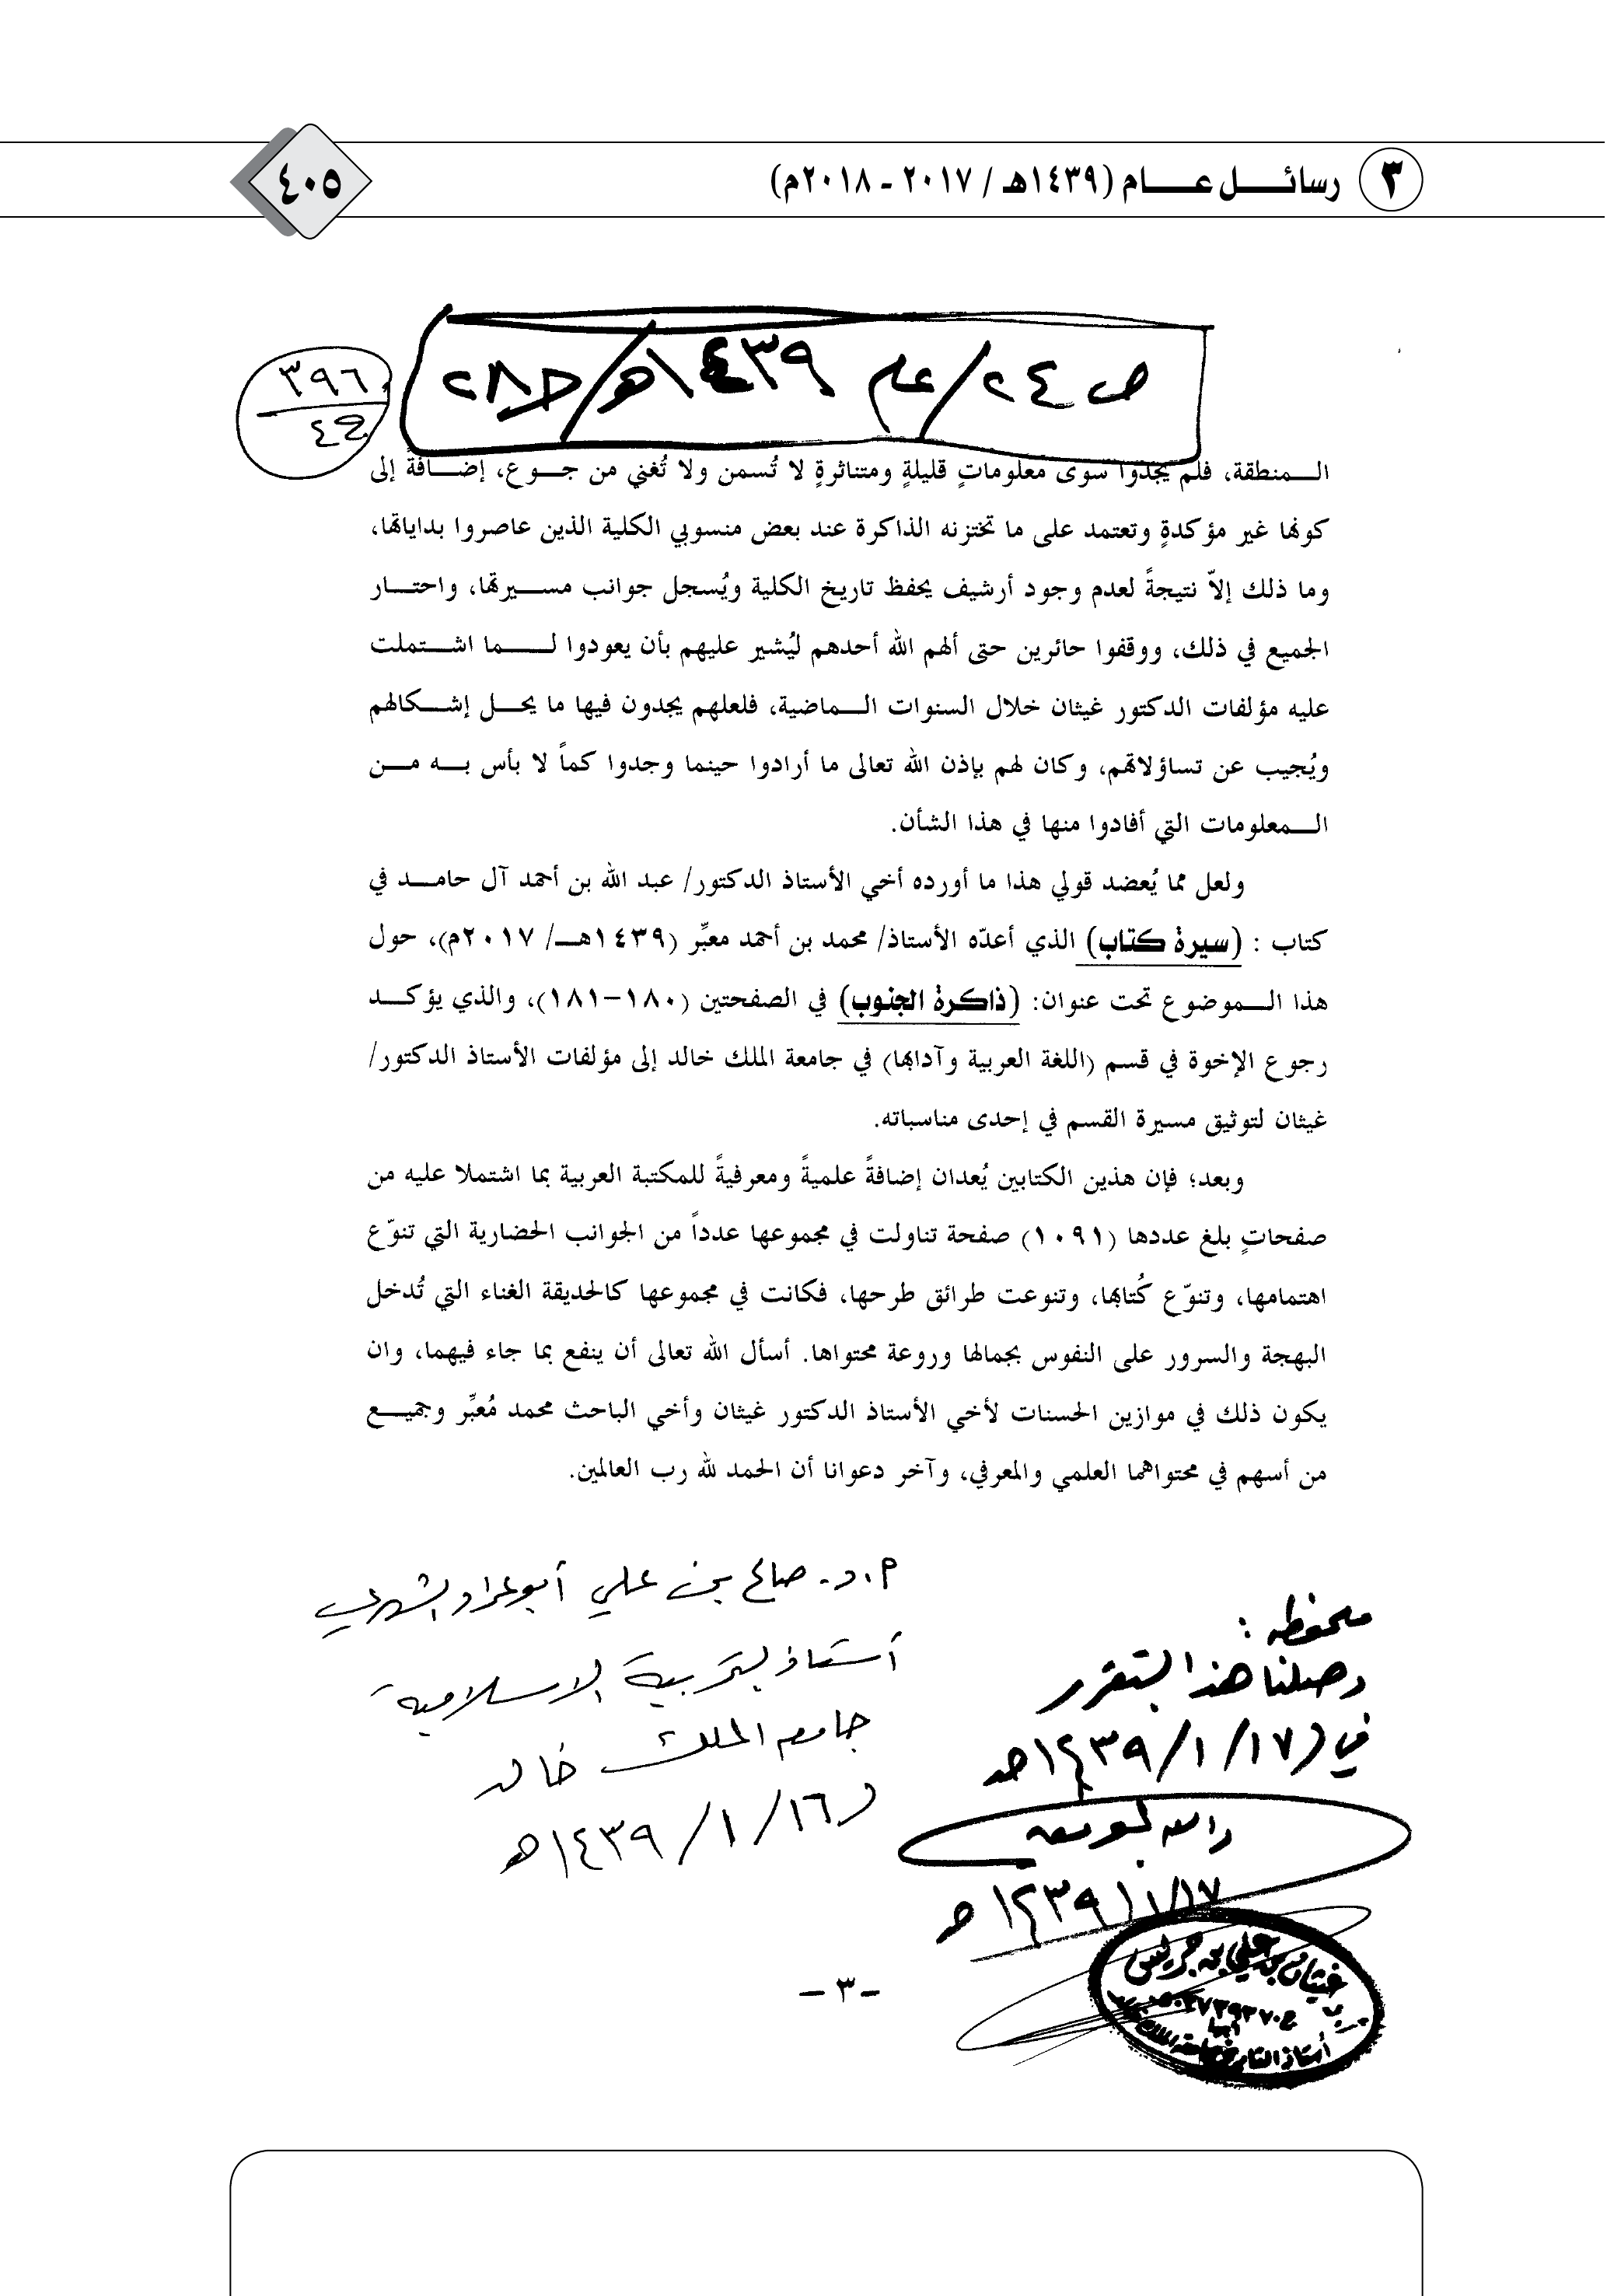 ٣ رسائل عام (١٤٣٩هـ / ٢٠١٧ - ٢٠١٨م)
٤٠٥
ص ٢٤ / عام ١٤٣٩هـ / ج٢٨
٣٩٦
المنطقة، فلم يجدوا سوى معلوماتٍ قليلةٍ ومتناثرةٍ لا تُسمن ولا تُغني من جوع، إضافةً إلى
كونها غير مؤكدةٍ وتعتمد على ما تختزنه الذاكرة عند بعض منسوبي الكلية الذين عاصروا بداياتها،
وما ذلك إلاّ نتيجةً لعدم وجود أرشيف يحفظ تاريخ الكلية ويُسجل جوانب مسيرتها، واحتار
الجميع في ذلك، ووقفوا حائرين حتى ألهم الله أحدهم ليُشير عليهم بأن يعودوا لما اشتملت
عليه مؤلفات الدكتور غيثان خلال السنوات الماضية، فلعلهم يجدون فيها ما يحل إشكالهم
ويُجيب عن تساؤلاتهم، وكان لهم بإذن الله تعالى ما أرادوا حينما وجدوا كماً لا بأس به من
المعلومات التي أفادوا منها في هذا الشأن.
ولعل مما يُعضد قولي هذا ما أورده أخي الأستاذ الدكتور/ عبد الله بن أحمد آل حامد في
كتاب : (سيرة كتاب) الذي أعدّه الأستاذ/ محمد بن أحمد معبِّر (١٤٣٩هـ/ ٢٠١٧م)، حول
هذا الموضوع تحت عنوان: (ذاكرة الجنوب) في الصفحتين (١٨٠–١٨١)، والذي يؤكد
رجوع الإخوة في قسم (اللغة العربية وآدابها) في جامعة الملك خالد إلى مؤلفات الأستاذ الدكتور/
غيثان لتوثيق مسيرة القسم في إحدى مناسباته.
وبعد؛ فإن هذين الكتابين يُعدان إضافةً علميةً ومعرفيةً للمكتبة العربية بما اشتملا عليه من
صفحاتٍ بلغ عددها (١٠٩١) صفحة تناولت في مجموعها عدداً من الجوانب الحضارية التي تنوّع
اهتمامها، وتنوّع كُتابها، وتنوعت طرائق طرحها، فكانت في مجموعها كالحديقة الغناء التي تُدخل
البهجة والسرور على النفوس بجمالها وروعة محتواها. أسأل الله تعالى أن ينفع بما جاء فيهما، وان
يكون ذلك في موازين الحسنات لأخي الأستاذ الدكتور غيثان وأخي الباحث محمد مُعبِّر وجميع
من أسهم في محتواهما العلمي والمعرفي، وآخر دعوانا أن الحمد لله رب العالمين.
أ.د. صالح بن علي أبوعراد الشهري
أستاذ التربية الإسلامية
جامعة الملك خالد
١٦/ ١/ ١٤٣٩هـ
ملحوظه :
وصلنا هذا التقرير
في ١٧/ ١/ ١٤٣٩هـ
والله الموفق
١٧/ ١/ ١٤٣٩هـ
غيثان بن علي بن جريس
أبها
أستاذ التاريخ بجامعة الملك خالد
- ٣ -